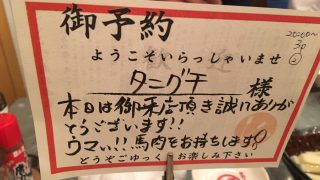 御予約
2000〜
30
②
ようこそいらっしゃいませ
タニグチ 様
本日は御来店頂き誠にありが
とうございます!!
ウマい!!馬肉をお持ちします
どうぞごゆっくりお楽しみ下さい